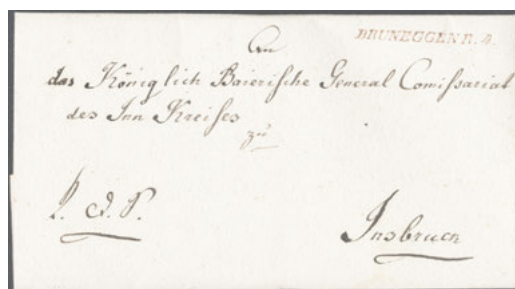 BRUNEGGEN R. 4.
An
das Königlich Baierische General Comißariat
des Inn Kreises
zu
Insbruck